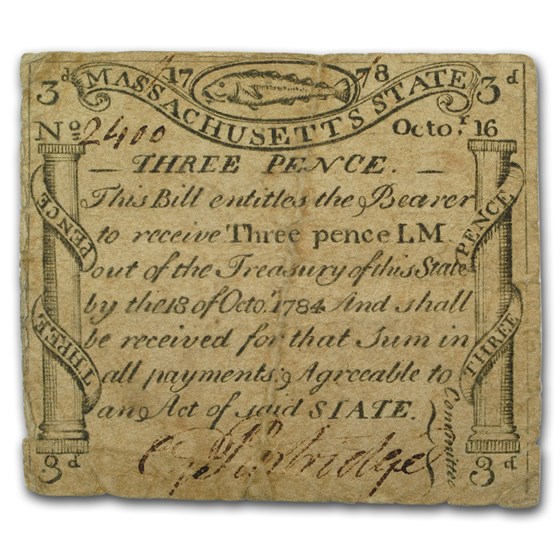 3d 17 78 3d
MASSACHUSETTS STATE
No 2400 Octo.r 16
THREE PENCE.
This Bill entitles the Bearer
to receive Three pence LM
out of the Treasury of this State
by the 18 of Octo.r 1784 And shall
be received for that Sum in
all payments Agreeable to
an Act of said STATE.
THREE PENCE
THREE PENCE
Committee
3d 3d